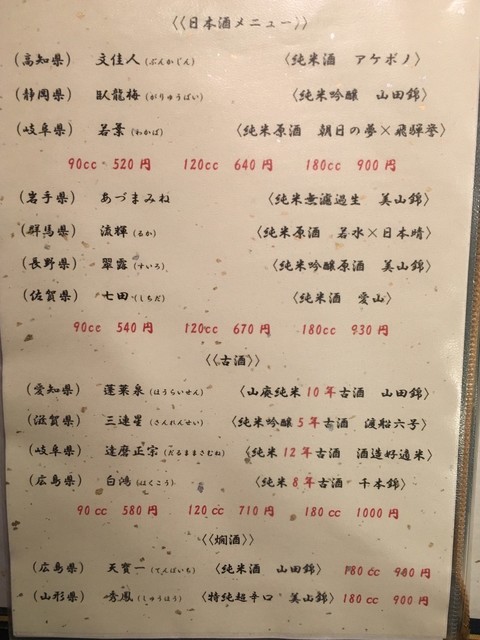 〈〈日本酒メニュー〉〉
(高知県) 文佳人 (ぶんかじん) 〈純米酒 アケボノ〉
(静岡県) 臥龍梅 (がりゅうばい) 〈純米吟醸 山田錦〉
(岐阜県) 若葉 (わかば) 〈純米原酒 朝日の夢×飛騨誉〉
90cc 520円 120cc 640円 180cc 900円
(岩手県) あづまみね 〈純米無濾過生 美山錦〉
(群馬県) 流輝 (るか) 〈純米原酒 若水×日本晴〉
(長野県) 翠露 (すいろ) 〈純米吟醸原酒 美山錦〉
(佐賀県) 七田 (しちだ) 〈純米酒 愛山〉
90cc 540円 120cc 670円 180cc 930円
〈〈古酒〉〉
(愛知県) 蓬莱泉 (ほうらいせん) 〈山廃純米10年古酒 山田錦〉
(滋賀県) 三連星 (さんれんせい) 〈純米吟醸5年古酒 渡船六号〉
(岐阜県) 達磨正宗 (だるままさむね) 〈純米12年古酒 酒造好適米〉
(広島県) 白鴻 (はくこう) 〈純米8年古酒 千本錦〉
90cc 580円 120cc 710円 180cc 1000円
〈〈燗酒〉〉
(広島県) 天寶一 (てんぽういち) 〈純米酒 山田錦〉 180cc 900円
(山形県) 秀鳳 (しゅうほう) 〈特純超辛口 美山錦〉 180cc 900円